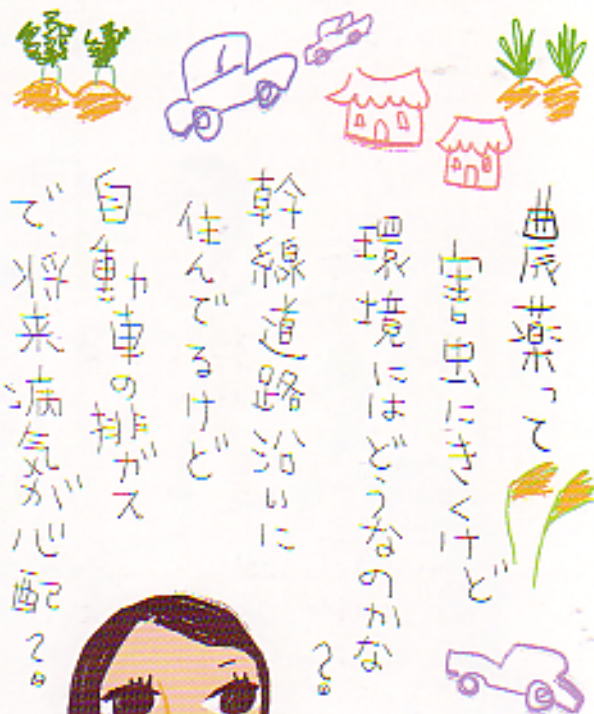 農薬って
害虫にきくけど
環境にはどうなのかな
?
幹線道路沿いに
住んでるけど
自動車の排ガス
で、将来病気が心配?